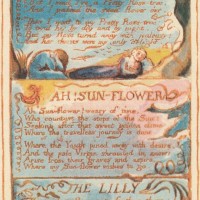 Pretty Rose-tree
And I passed the sweet flower o'er.
Then I went to my Pretty Rose-tree
To tend her by day and by night.
But my Rose turnd away with jealousy
And her thorns were my only delight.
AH! SUN-FLOWER
Ah Sun-flower! weary of time,
Who countest the steps of the Sun:
Seeking after that sweet golden clime
Where the travellers journey is done.
Where the Youth pined away with desire,
And the pale Virgin shrouded in snow:
Arise from their graves and aspire,
Where my Sun-flower wishes to go.
THE LILLY